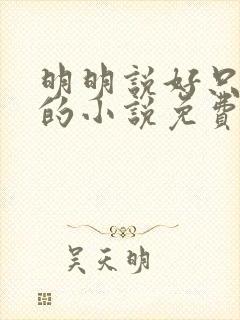 明明說好只
的小說免費
吴天明